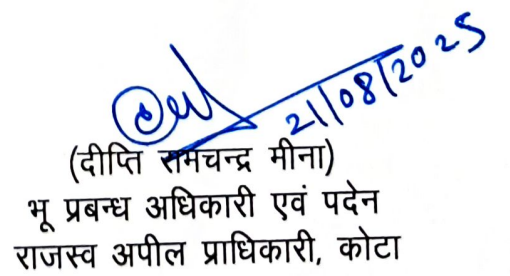 21/08/2025
(दीप्ति रामचन्द्र मीना)
भू प्रबन्ध अधिकारी एवं पदेन
राजस्व अपील प्राधिकारी, कोटा